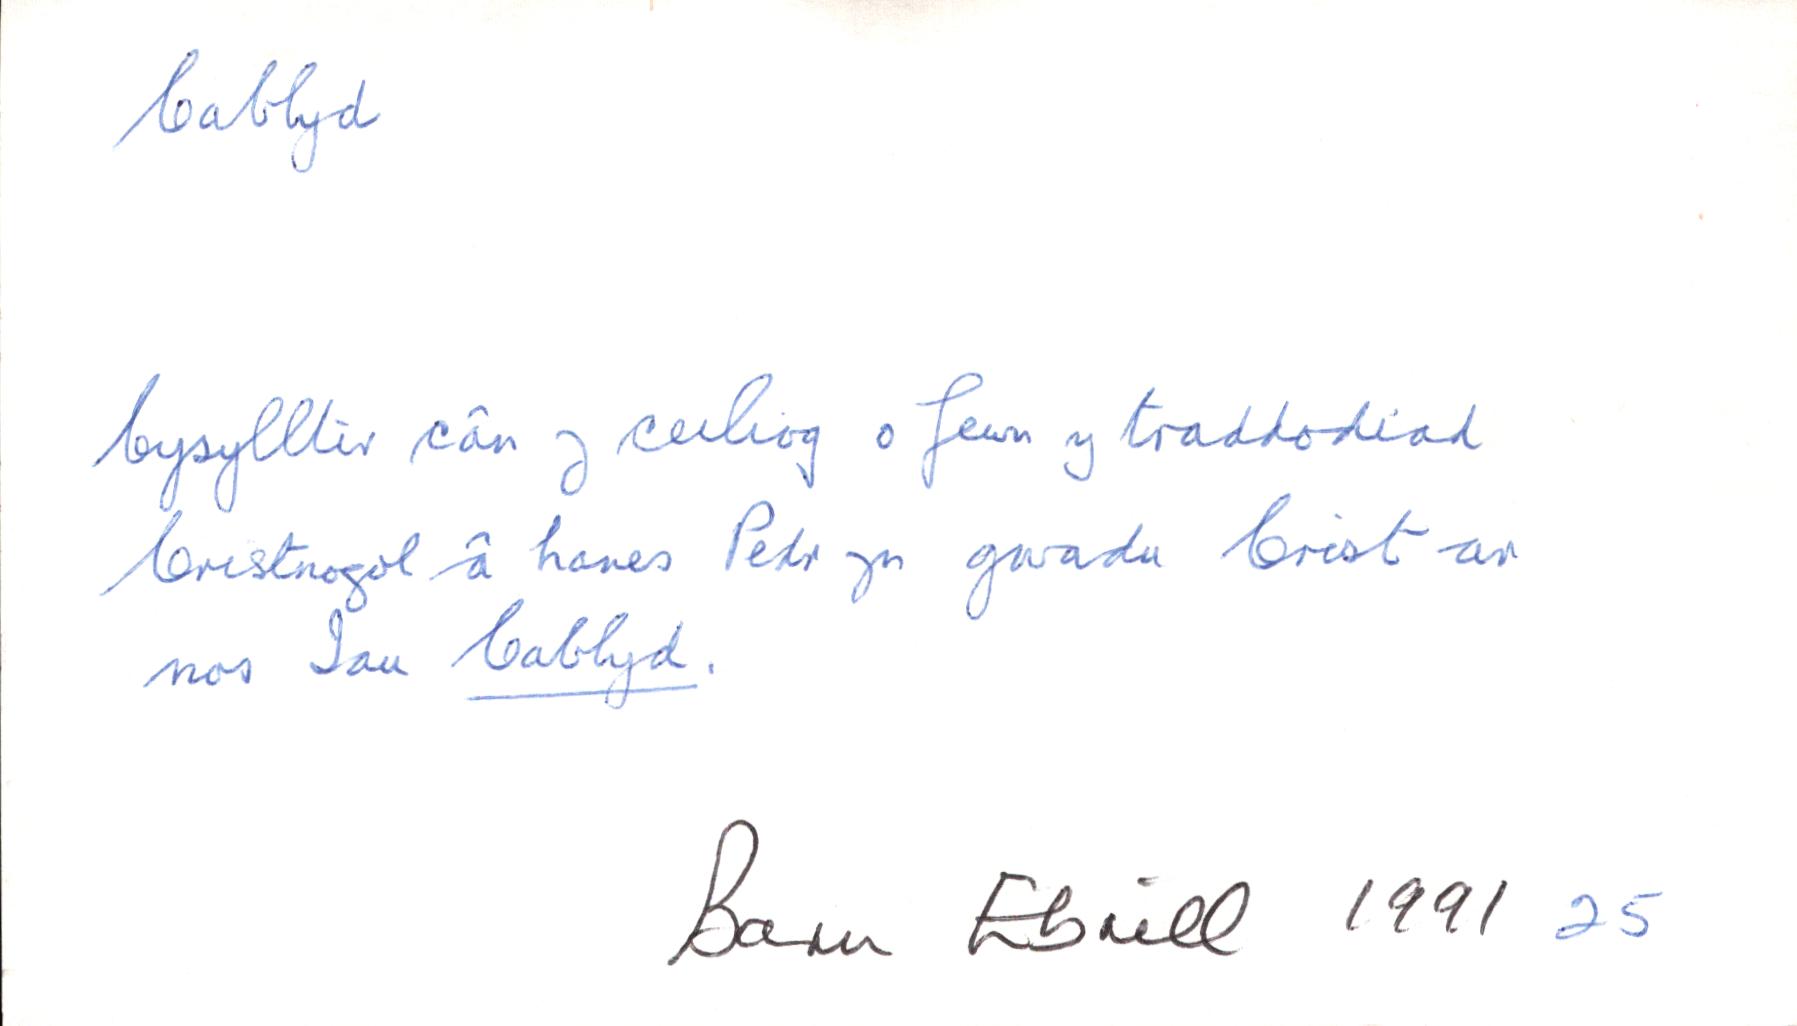 Cablyd
Cysylltir cân y ceiliog o fewn y traddodiad
Cristnogol â hanes Pedr yn gwadu Crist ar
nos Iau Cablyd.
Barn Ebrill 1991 25